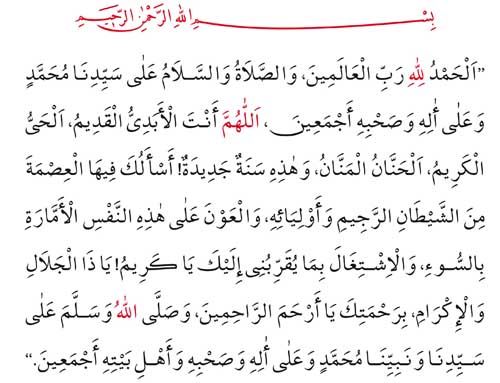 بِسْمِ اللهِ الرَّحْمٰنِ الرَّحِيمِ
”اَلْحَمْدُ لِلّٰهِ رَبِّ الْعَالَمِينَ، وَالصَّلَاةُ وَالسَّلَامُ عَلٰى سَيِّدِنَا مُحَمَّدٍ
وَعَلٰى أٰلِهِ وَصَحْبِهِ أَجْمَعِينَ، اَللّٰهُمَّ أَنْتَ الْأَبَدِىُّ الْقَدِيمُ، اَلْحَىُّ
الْكَرِيمُ، اَلْحَنَّانُ الْمَنَّانُ، وَهٰذِهِ سَنَةٌ جَدِيدَةٌ! أَسْأَلُكَ فِيهَا الْعِصْمَةَ
مِنَ الشَّيْطَانِ الرَّجِيمِ وَأَوْلِيَائِهِ، وَالْعَوْنَ عَلٰى هٰذِهِ النَّفْسِ الْأَمَّارَةِ
بِالسُّوءِ، وَالْاِشْتِغَالَ بِمَا يُقَرِّبُنِى إِلَيْكَ يَا كَرِيمُ! يَا ذَا الْجَلَالِ
وَالْإِكْرَامِ، بِرَحْمَتِكَ يَا أَرْحَمَ الرَّاحِمِينَ، وَصَلَّى اللهُ وَسَلَّمَ عَلٰى
سَيِّدِنَا وَنَبِيِّنَا مُحَمَّدٍ وَعَلٰى أٰلِهِ وَصَحْبِهِ وَأَهْلِ بَيْتِهِ أَجْمَعِينَ.“